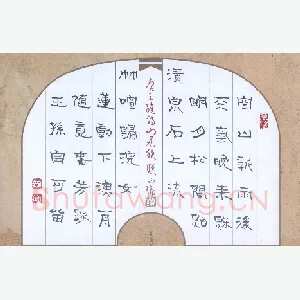 空山新雨後
天氣晚來秋
明月松間照
清泉石上流
王維詩山居秋暝
竹喧歸浣女
蓮動下漁舟
隨意春芳歇
王孫自可留
Shufawang.CN